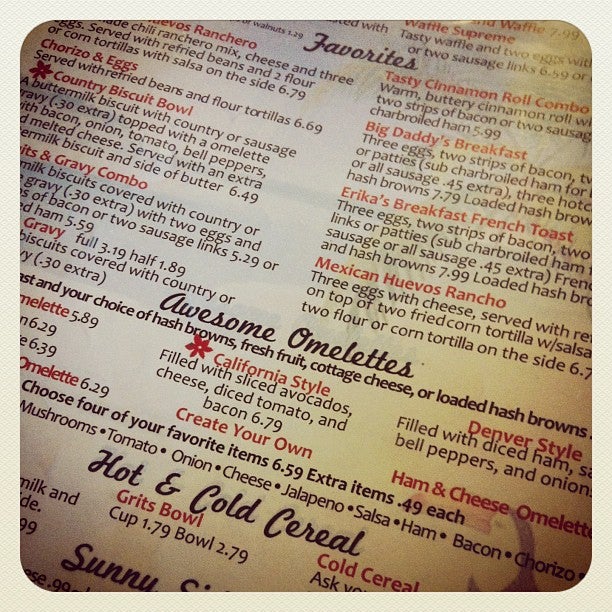 of walnuts 1.29
Huevos Ranchero
made chili ranchero mix, cheese and three
eggs. Served with refried beans and 2 flour
or corn tortillas with salsa on the side 6.79
Chorizo & Eggs
Served with refried beans and flour tortillas 6.69
Country Biscuit Bowl
A buttermilk biscuit with country or sausage
gravy (.30 extra) topped with a omelette
with bacon, onion, tomato, bell peppers,
and melted cheese. Served with an extra
buttermilk biscuit and side of butter 6.49
its & Gravy Combo
milk biscuits covered with country or
gravy (.30 extra) with two eggs and
s of bacon or two sausage links 5.29 or
d ham 5.59
Gravy full 3.19 half 1.89
biscuits covered with country or
vy (.30 extra)
Favorites
Waffle 7.99
Waffle Supreme
Tasty waffle and two eggs with
or two sausage links 6.59 or
Tasty Cinnamon Roll Combo
Warm, buttery cinnamon roll w
two strips of bacon or two sausag
charbroiled ham 5.99
Big Daddy's Breakfast
Three eggs, two strips of bacon, t
or patties (sub charbroiled ham for
or all sausage .45 extra), three hotc
hash browns 7.79 Loaded hash brow
Erika's Breakfast French Toast
Three eggs, two strips of bacon, two
links or patties (sub charbroiled ham
sausage or all sausage .45 extra) Frenc
and hash browns 7.99 Loaded hash bro
Mexican Huevos Rancho
Three eggs with cheese, served with re
on top of two fried corn tortilla w/salsa
two flour or corn tortilla on the side 6.7
Awesome Omelettes
ast and your choice of hash browns, fresh fruit, cottage cheese, or loaded hash browns
melette 5.89
n 6.29
e 6.39
Omelette 6.29
California Style
Filled with sliced avocados,
cheese, diced tomato, and
bacon 6.79
Denver Style
Filled with diced ham, sa
bell peppers, and onion
Create Your Own
Choose four of your favorite items 6.59 Extra items .49 each
Mushrooms • Tomato • Onion • Cheese • Jalapeno • Salsa • Ham • Bacon • Chorizo •
Ham & Cheese Omelette
Hot & Cold Cereal
milk and
de.
99
Grits Bowl
Cup 1.79 Bowl 2.79
Cold Cereal
Ask yo
Sunny
ese .99